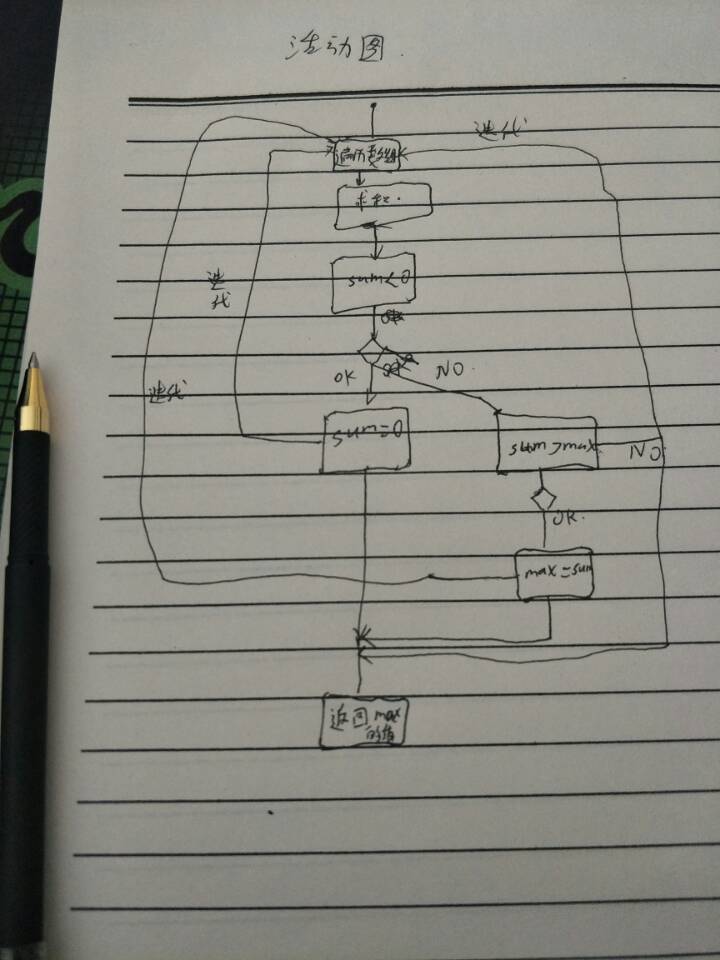 活动图.
迭代
遍历数组
求和.
sum<0
迭
代
OK
NO
迭代
sum=0
sum<max
NO
OK.
max=sum
返回max
的值